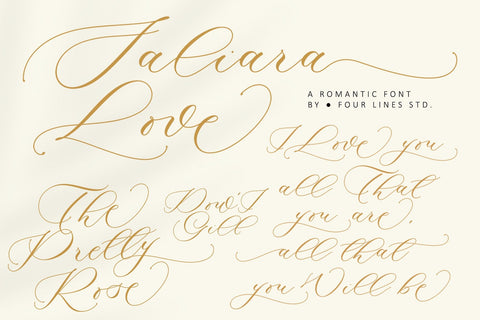 Taliara
Love
A ROMANTIC FONT
BY ● FOUR LINES STD.
I Love you
all That
you are,
all that
you Will be
The
Pretty
Rose
Dow'I
Gill